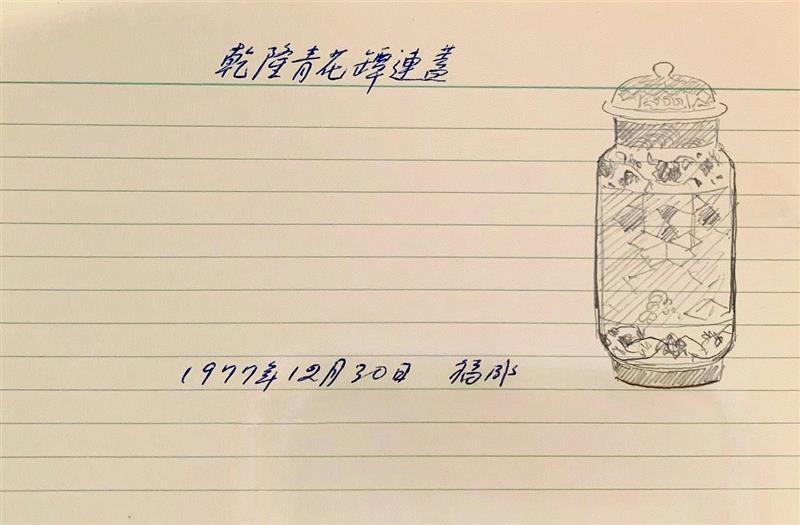 乾隆青花罈連蓋
1977年12月30日